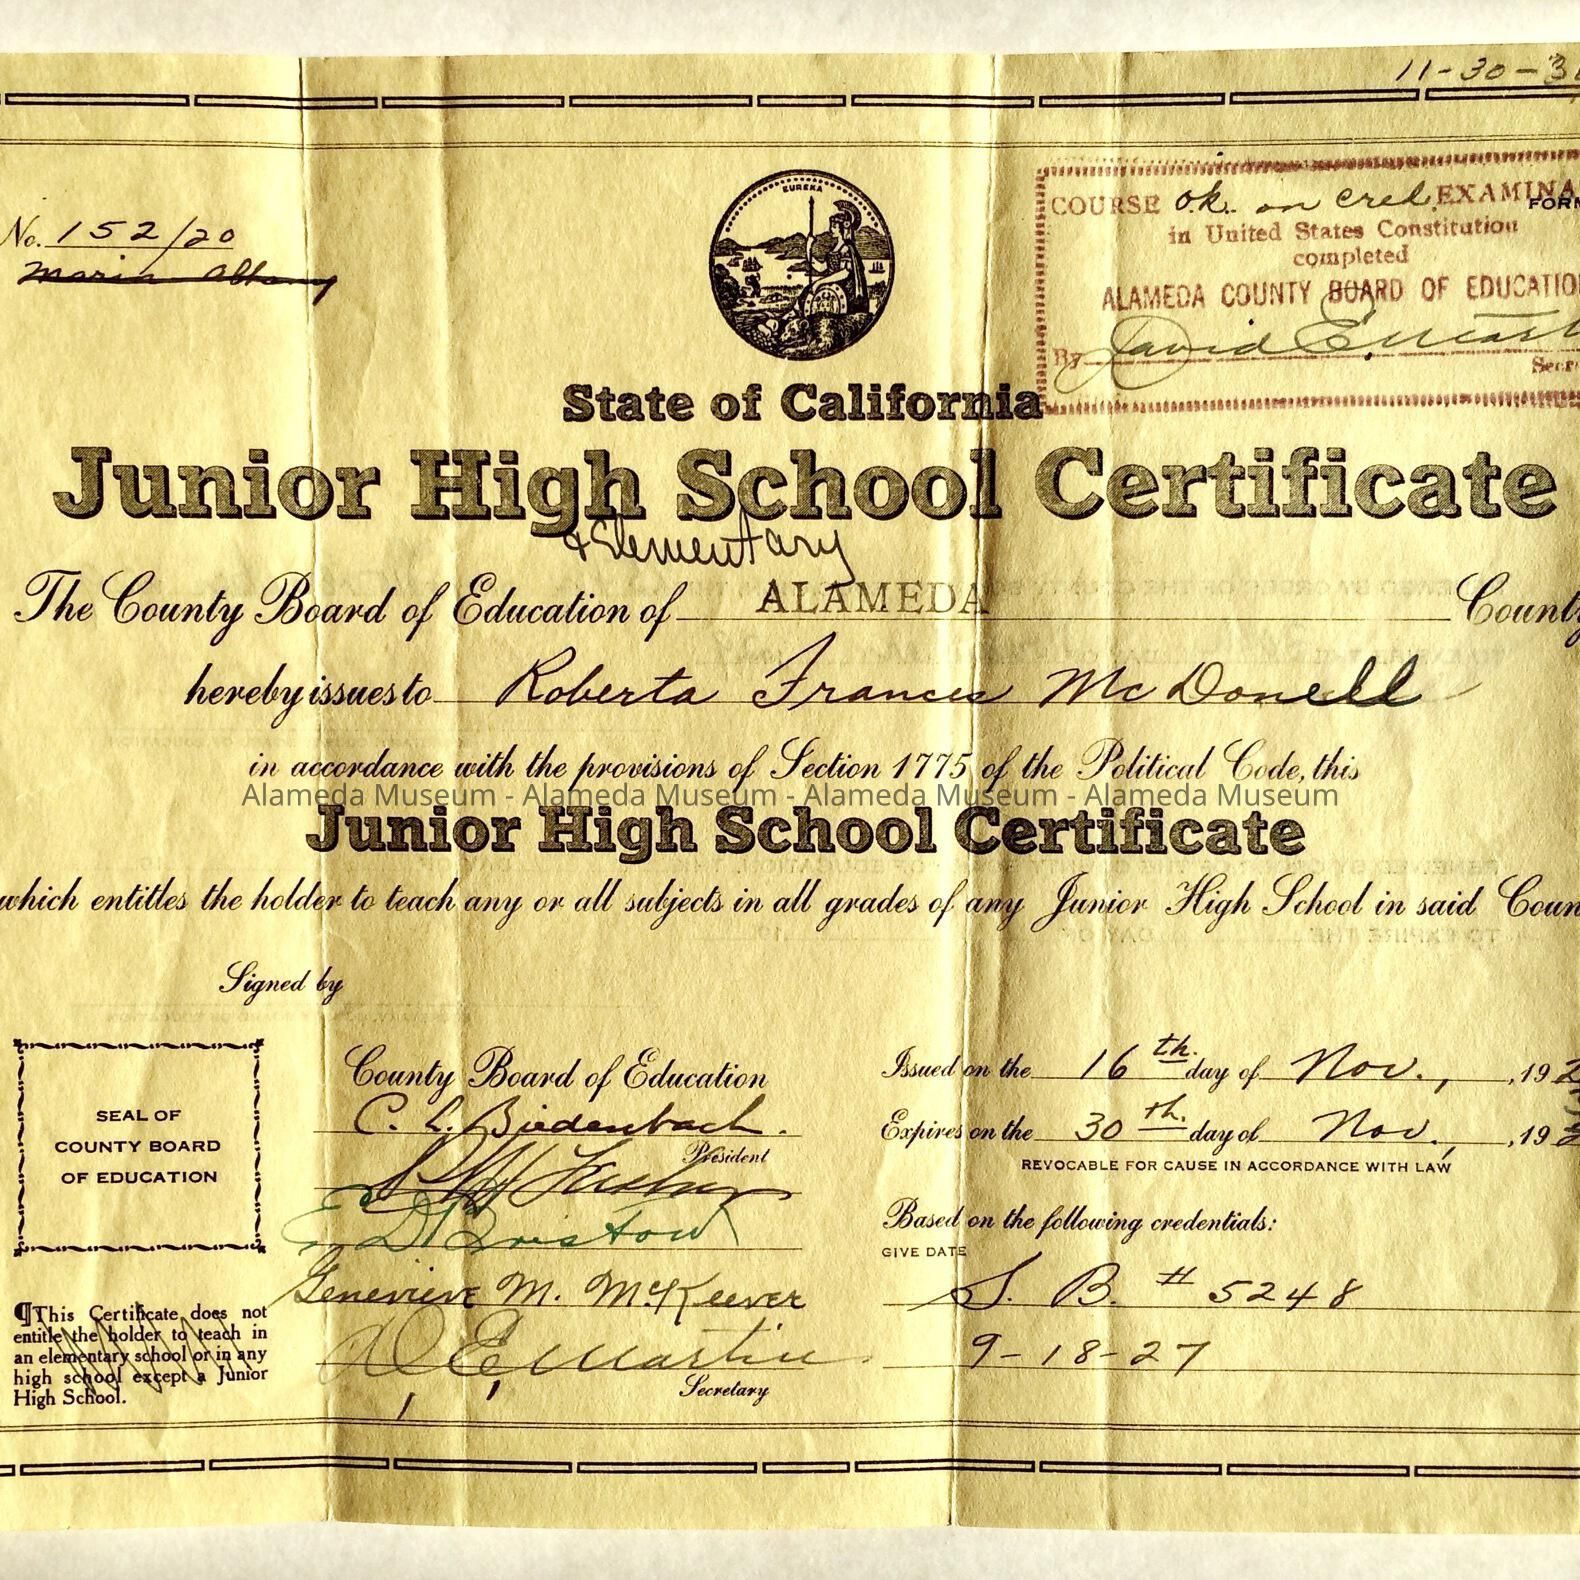 11-30-3
No. 152/20
EUREKA
COURSE o.k. on cred. EXAMINA
FORM
in United States Constitution
completed
ALAMEDA COUNTY BOARD OF EDUCATIO
By David E. Mart
Secr
State of California
Junior High School Certificate
& Elementary
The County Board of Education of ALAMEDA County
hereby issues to Roberta Frances McDonell
in accordance with the provisions of Section 1775 of the Political Code, this
Alameda Museum - Alameda Museum - Alameda Museum - Alameda Museum
Junior High School Certificate
which entitles the holder to teach any or all subjects in all grades of any Junior High School in said Coun
Signed by
SEAL OF
COUNTY BOARD
OF EDUCATION
County Board of Education
C. L. Biedenbach.
President
Genevieve M. McKeever
D E Martin
Secretary
¶This Certificate does not
entitle the holder to teach in
an elementary school or in any
high school except a Junior
High School.
Issued on the 16th. day of Nov., 192
Expires on the 30th. day of Nov., 19
REVOCABLE FOR CAUSE IN ACCORDANCE WITH LAW
Based on the following credentials:
GIVE DATE
S. B. # 5248
9-18-27